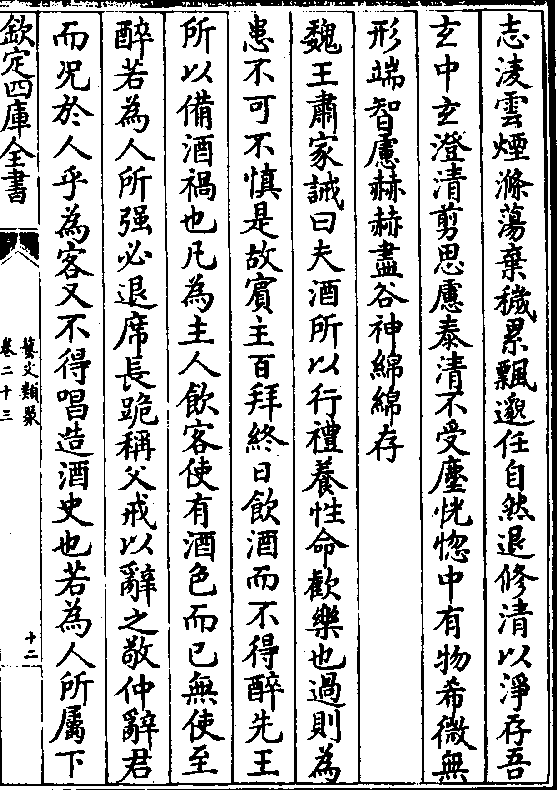 志凌雲煙滌蕩棄穢累飄邈任自然退修清以淨存吾
玄中玄澄清剪思慮泰清不受塵恍惚中有物希微無
形端智慮赫赫盡谷神綿綿存
魏王肅家誡曰夫酒所以行禮養性命歡樂也過則為
患不可不慎是故賓主百拜終日飲酒而不得醉先王
所以備酒禍也凡為主人飲客使有酒色而已無使至
醉若為人所强必退席長跪稱父戒以辭之敬仲辭君
而况於人乎為客又不得唱造酒史也若為人所屬下
欽定四庫全書
藝文類聚
卷二十三
十二